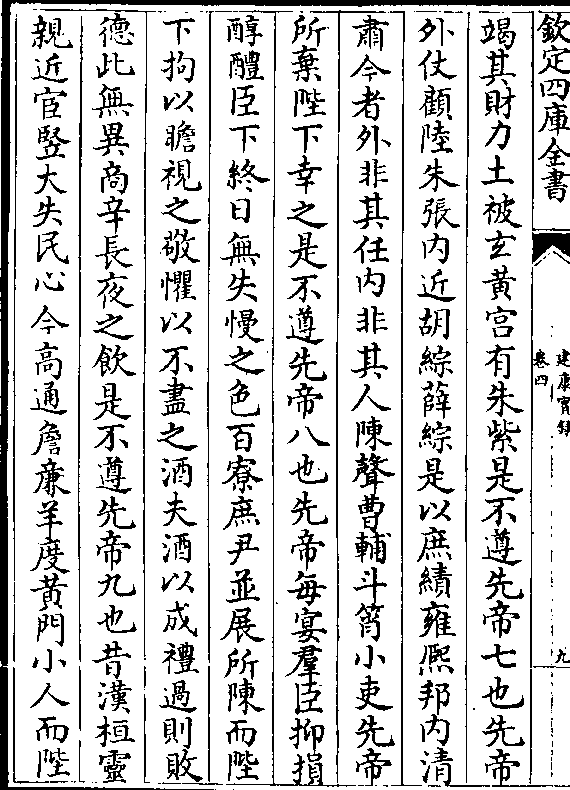 欽定四庫全書
建康實錄
卷四
九
竭其財力土被玄黄宫有朱紫是不遵先帝七也先帝
外仗顧陸朱張内近胡綜薛綜是以庶績雍熈邦内清
肅今者外非其任内非其人陳聲曹輔斗筲小吏先帝
所棄陛下幸之是不遵先帝八也先帝每宴羣臣抑損
醇醴臣下終日無失慢之色百寮庶尹並展所陳而陛
下拘以瞻視之敬懼以不盡之酒夫酒以成禮過則敗
德此無異商辛長夜之飲是不遵先帝九也昔漢桓靈
親近宦豎大失民心今高通詹亷羊度黄門小人而陛